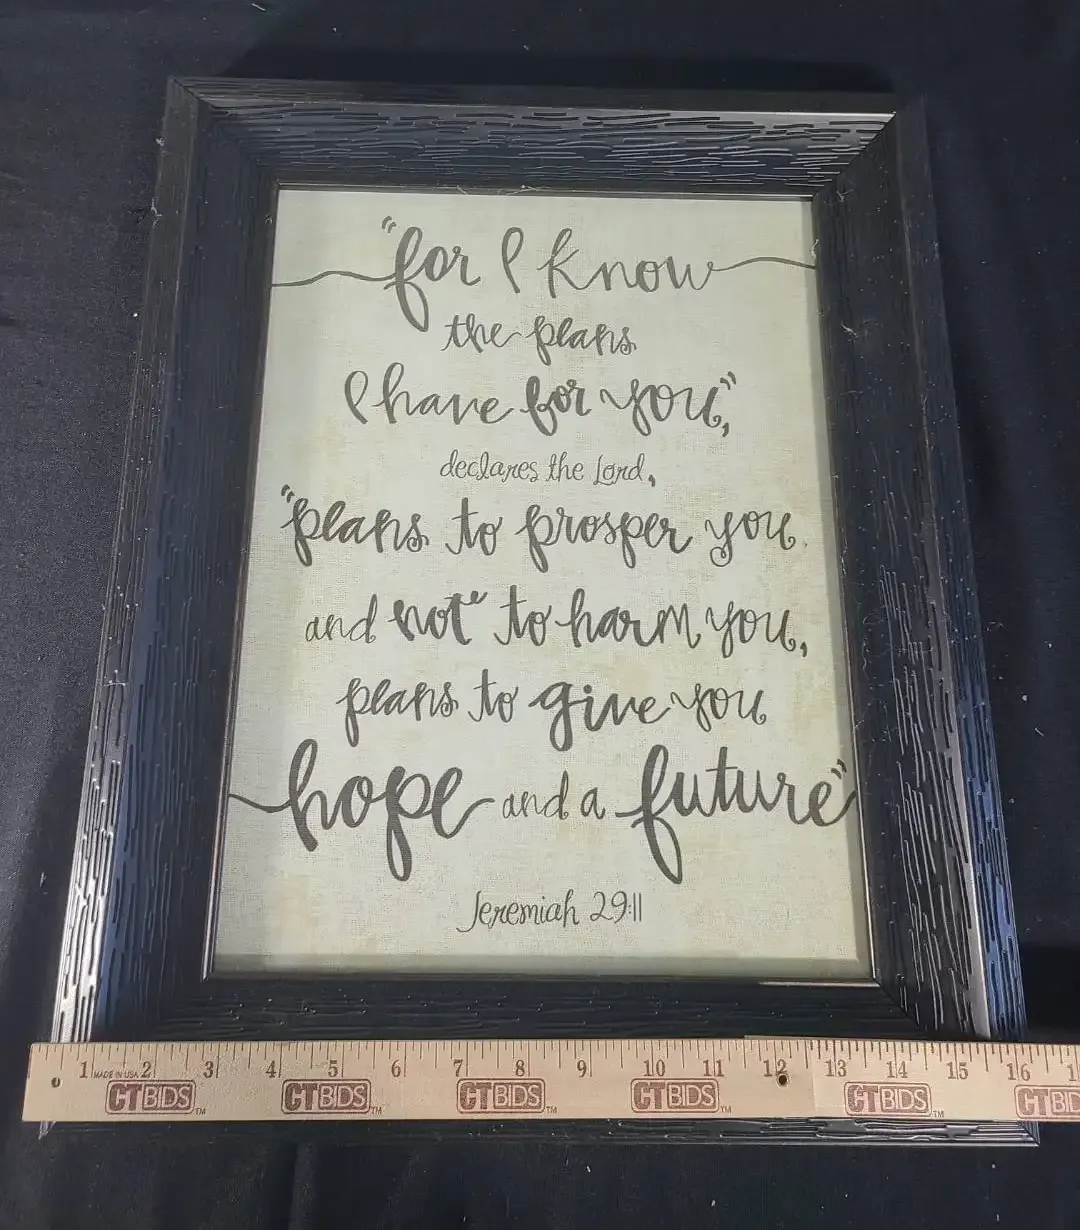 "for I know
the plans
I have for you,"
declares the Lord,
"plans to prosper you
and not to harm you,
plans to give you
hope and a future"
Jeremiah 29:11
1 MADE IN USA 2 3 4 5 6 7 8 9 10 11 12 13 14 15 16 1
CTBIDS™ CTBIDS™ CTBIDS™ CTBIDS™ CTBIDS™ CTBID